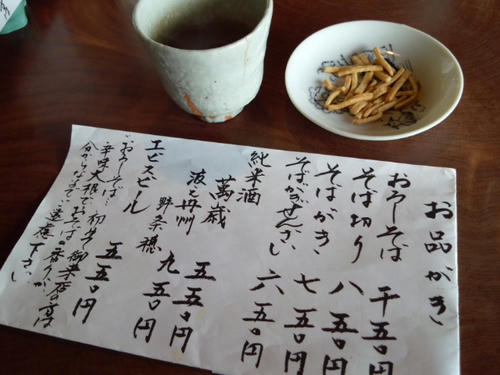 お品がき
おろしそば 千五〇円
そば切り 八五〇円
そばがき 七五〇円
そばがきぜんざい 六五〇円
純米酒
萬歳 五五〇円
波と丹州
野条穂 九五〇円
エビスビール 五五〇円
おろしそば…
辛味大根でおそばの香りが
分からなくなるので
初めて御来店の方は
ご遠慮下さい